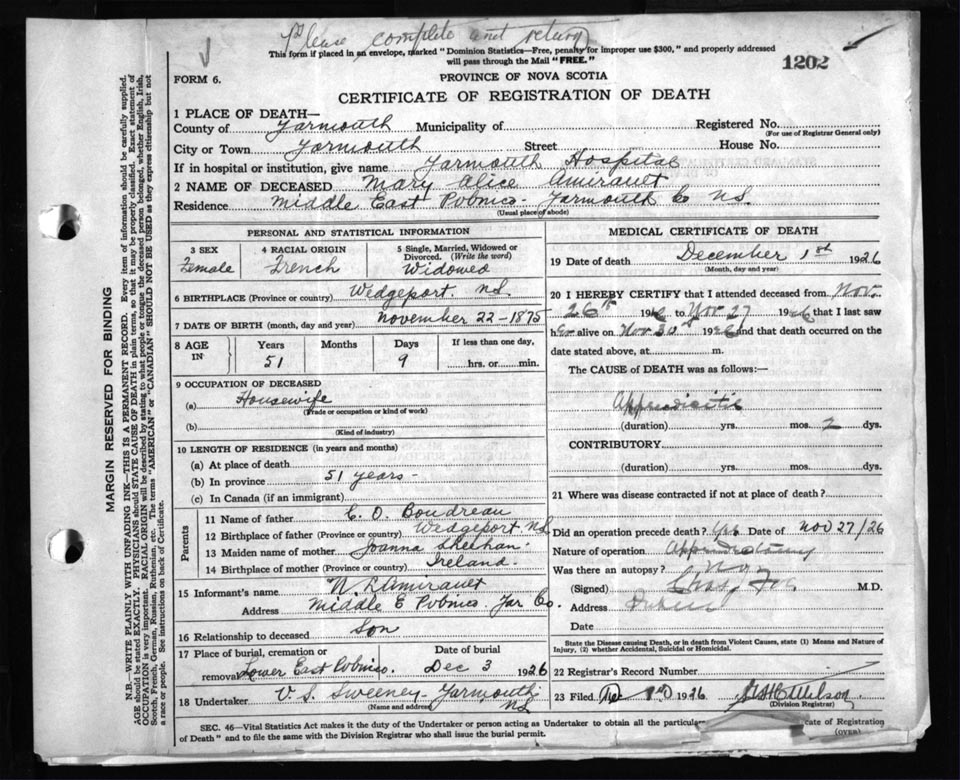 Please complete and return
This form if placed in an envelope, marked "Dominion Statistics—Free, penalty for improper use $300," and properly addressed
will pass through the Mail "FREE."
1202
FORM 6.
PROVINCE OF NOVA SCOTIA
CERTIFICATE OF REGISTRATION OF DEATH
1 PLACE OF DEATH—
County of Yarmouth Municipality of Registered No.
(For use of Registrar General only)
City or Town Yarmouth Street House No.
If in hospital or institution, give name Yarmouth Hospital
2 NAME OF DECEASED Mary Alice Amirault
Residence Middle East Pubnico - Yarmouth Co NS.
(Usual place of abode)
PERSONAL AND STATISTICAL INFORMATION
3 SEX Female
4 RACIAL ORIGIN French
5 Single, Married, Widowed or Divorced. (Write the word) Widowed
6 BIRTHPLACE (Province or country) Wedgeport. NS.
7 DATE OF BIRTH (month, day and year) november 22 - 1875
8 AGE IN Years 51 Months Days 9 If less than one day, hrs. or min.
9 OCCUPATION OF DECEASED
(a) Housewife
(Trade or occupation or kind of work)
(b)
(Kind of industry)
10 LENGTH OF RESIDENCE (in years and months)
(a) At place of death
(b) In province 51 years -
(c) In Canada (if an immigrant)
Parents
11 Name of father C. O. Boudreau
12 Birthplace of father (Province or country) Wedgeport NS.
13 Maiden name of mother Joanna Sheehan
14 Birthplace of mother (Province or country) Ireland.
15 Informant's name Amirault
Address Middle E Pubnico. Yar Co.
16 Relationship to deceased Son
17 Place of burial, cremation or removal Lower East Pubnico. Date of burial Dec 3 1926
18 Undertaker V. S. Sweeney - Yarmouth, NS
(Name and address)
MEDICAL CERTIFICATE OF DEATH
19 Date of death December 1st 1926
(Month, day and year)
20 I HEREBY CERTIFY that I attended deceased from Nov.
26th 1926 to Nov 27 1926 that I last saw
her alive on Nov 30th 1926 and that death occurred on the
date stated above, at m.
The CAUSE of DEATH was as follows:—
Appendicitis
(duration) yrs. mos. 2 dys.
CONTRIBUTORY
(duration) yrs. mos. dys.
21 Where was disease contracted if not at place of death?
Did an operation precede death? Yes Date of Nov 27/26
Nature of operation
Was there an autopsy? No
(Signed) M.D.
Address
Date
State the Disease causing Death, or in death from Violent Causes, state (1) Means and Nature of
Injury, (2) whether Accidental, Suicidal or Homicidal.
22 Registrar's Record Number
23 Filed 1926
(Division Registrar)
SEC. 46—Vital Statistics Act makes it the duty of the Undertaker or person acting as Undertaker to obtain all the particular cate of Registration
of Death" and to file the same with the Division Registrar who shall issue the burial permit.
(OVER)
MARGIN RESERVED FOR BINDING
N.B.—WRITE PLAINLY WITH UNFADING INK—THIS IS A PERMANENT RECORD. Every item of information should be carefully supplied.
AGE should be stated EXACTLY. PHYSICIANS should STATE CAUSE OF DEATH in plain terms, so that it may be properly classified. Exact statement of
OCCUPATION is very important. RACIAL ORIGIN will be described by stating to what people or tongue the deceased person belonged, whether English, Irish,
Scotch, French, German, Russian, Ruthenian, etc. The terms "AMERICAN" or "CANADIAN" SHOULD NOT BE USED as they express citizenship but not
a race or people. See instructions on back of Certificate.